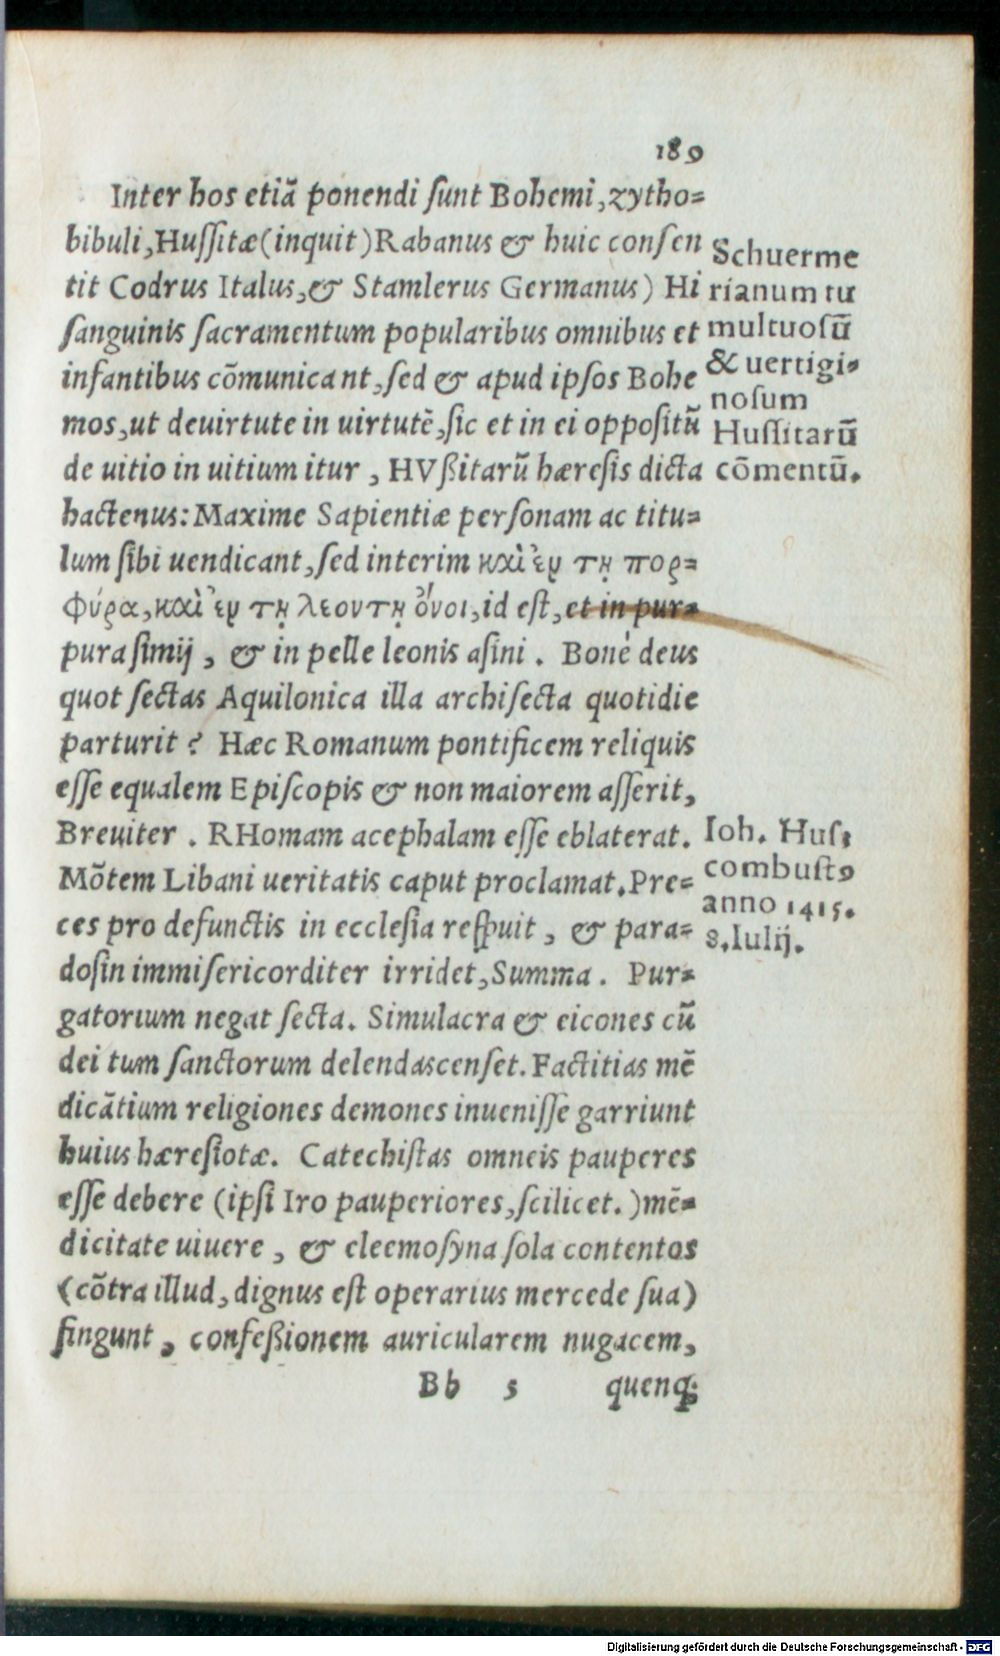 189
Inter hos etiã ponendi ſunt Bohemi, zytho=
bibuli, Huſſitæ (inquit) Rabanus & huic conſen
tit Codrus Italus, & Stamlerus Germanus) Hi
ſanguinis ſacramentum popularibus omnibus et
infantibus cõmunicant, ſed & apud ipſos Bohe
mos, ut deuirtute in uirtutẽ, ſic et in ei oppoſitũ
de uitio in uitium itur, HVßitarũ hæreſis dicta
hactenus: Maxime Sapientiæ perſonam ac titu=
lum ſibi uendicant, ſed interim καὶ ἐν τῃ πορ=
φύρα, καὶ ἐν τῃ λεοντῃ ὄνοι, id eſt, et in pur=
pura ſimij, & in pelle leonis aſini. Bone deus
quot ſectas Aquilonica illa archiſecta quotidie
parturit? Hæc Romanum pontificem reliquis
eſſe equalem Epiſcopis & non maiorem aſſerit,
Breuiter. RHomam acephalam eſſe eblaterat.
Mõtem Libani ueritatis caput proclamat. Pre=
ces pro defunctis in eccleſia reſpuit, & para=
doſin immiſericorditer irridet, Summa. Pur=
gatorium negat ſecta. Simulacra & eicones cũ
dei tum ſanctorum delendascenſet. Factitias mẽ
dicãtium religiones demones inueniſſe garriunt
huius hæreſiotæ. Catechiſtas omneis pauperes
eſſe debere (ipſi Iro pauperiores, ſcilicet.) mẽ=
dicitate uiuere, & eleemoſyna ſola contentos
(cõtra illud, dignus eſt operarius mercede ſua)
fingunt, confeßionem auricularem nugacem,
Bb 5 quenq;
Schuerme
rianum tu
multuoſũ
& uertigi=
noſum
Huſſitarũ
cõmentũ.
Ioh. Huſ;
combuſtꝯ
anno 1415.
8. Iulij.
Digitalisierung gefördert durch die Deutsche Forschungsgemeinschaft - DFG